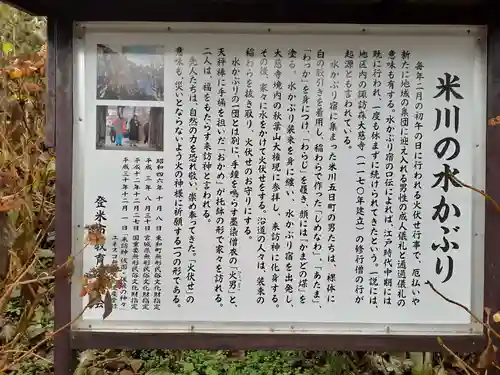 米川の水かぶり
毎年二月の初午の日に行われる火伏せ行事で、厄払いや
新たに地域の集団に迎え入れる男性の成人儀礼と通過儀礼の
意味も有する。水かぶり宿の口伝によれば、江戸時代中期には
既に行われ、一度も休まずに続けられてきたという。一説には、
地区内の諏訪森大慈寺（一一七〇年建立）の修行僧の行が
起源とも言われている。
水かぶり宿に集まった米川五日町の男たちは、裸体に
白の股引きを着用し、稲わらで作った「しめなわ」、「あたま」、
「わっか」を身につけ、「わらじ」を履き、顔には「かまどの煤」を
塗る。水かぶり装束を身に纏い、水かぶり宿を出発し、
大慈寺境内の秋葉山大権現に参拝し、来訪神に化身する。
その後、家々に水をかけて火伏せをする。沿道の人々は、装束の
稲わらを抜き取り、火伏せのお守りにする。
水かぶりの一団とは別に、手鐘を鳴らす墨染僧衣の「火男」と、
天秤棒に手桶を担いだ「おかめ」が托鉢の形で家々を訪れる。
二人は、福をもたらす来訪神と言われる。
先人たちは、自然の力を恐れ敬い、崇め奉ってきた。「火伏せ」の
意味も、災いとならないよう火の神様に祈願する一つの形である。
昭和四六年十月八日 東和町無形民俗文化財指定
平成三年八月三十日 宮城県無形民俗文化財指定
平成十二年十二月二七日 国重要無形民俗文化財指定
平成三十年十一月
登米市教育